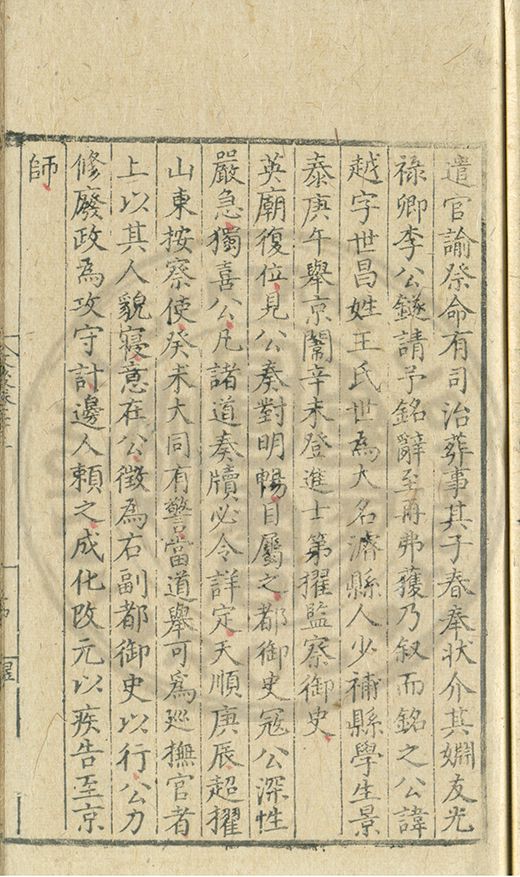 遣官諭祭命有司治葬事其子春奉狀介其姻友光
祿卿李公鐩請予銘辭至再弗獲乃叙而銘之公諱
越字世昌姓王氏世為大名濬縣人少補縣學生景
泰庚午舉京闈辛未登進士第擢監察御史
英廟復位見公奏對明暢目屬之都御史冦公深性
嚴急獨喜公凡諸道奏牘必令詳定天順庚辰超擢
山東按察使癸未大同有警當道舉可為廵撫官者
上以其人貌寝意在公徵為右副都御史以行公力
修廢政為攻守計邊人賴之成化改元以疾告至京
師